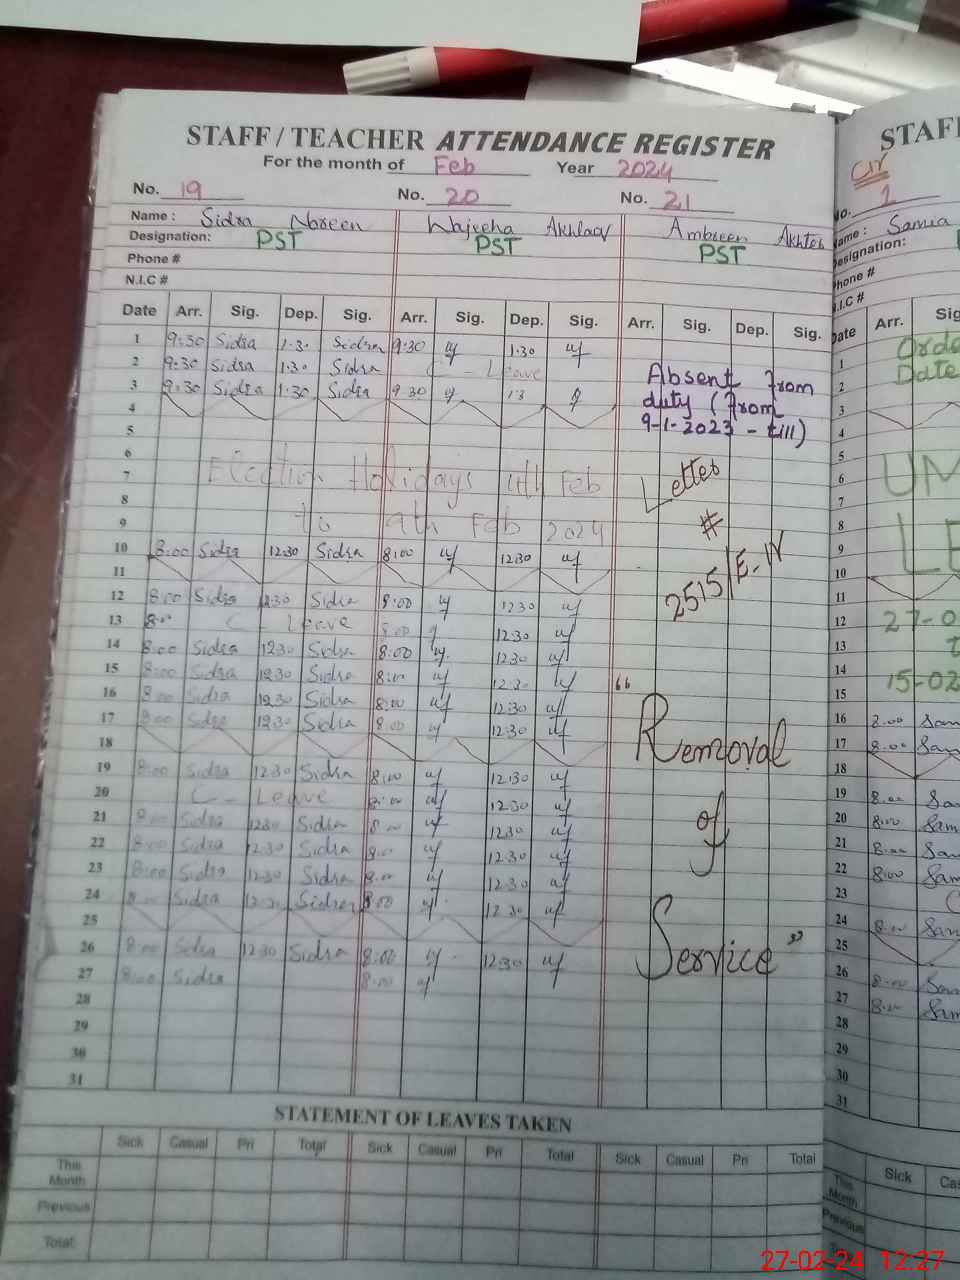 STAFF / TEACHER ATTENDANCE REGISTER
For the month of Feb Year 2024
No. 19 No. 20 No. 21
Name : Sidra Noreen Wajeeha Akhlaq Ambreen Akhter
Designation: PST PST PST
Phone #
N.I.C #
Date Arr. Sig. Dep. Sig. Arr. Sig. Dep. Sig. Arr. Sig. Dep. Sig.
1 9:30 Sidra 1.30 Sidra 9:30 1.30
2 9:30 Sidra 1.30 Sidra C - Leave
3 9:30 Sidra 1:30 Sidra 9 30 1 3
Absent from
duty (from
9-1-2023 - till)
4
5
6
7 Election Holidays 4th Feb
8
9 to 9th Feb 2024
Letter
#
2515/E-IV
10 8:00 Sidra 12:30 Sidra 8:00 12:30
11
12 8:00 Sidra 12:30 Sidra 8:00 12:30
13 8:00 C Leave 8:00 12:30
14 8:00 Sidra 12:30 Sidra 8:00 12:30
15 8:00 Sidra 12:30 Sidra 8:00 12:30
16 8:00 Sidra 12:30 Sidra 8:00 12:30
17 8:00 Sidra 12:30 Sidra 8:00 12:30
18
19 8:00 Sidra 12:30 Sidra 8:00 12:30
20 C - Leave 8:00 12:30
21 8:00 Sidra 12:30 Sidra 8:00 12:30
22 8:00 Sidra 12:30 Sidra 8:00 12:30
23 8:00 Sidra 12:30 Sidra 8:00 12:30
24 8:00 Sidra 12:30 Sidra 8:00 12:30
25
26 8:00 Sidra 12:30 Sidra 8:00 12:30
27 8:00 Sidra 8:00
28
29
30
31
"Removal
of
Service"
STATEMENT OF LEAVES TAKEN
Sick Casual Pri Total Sick Casual Pri Total Sick Casual Pri Total
This
Month
Previous
Total
STAF
No. 1
Name : Samia
Designation:
Phone #
N.I.C #
Date Arr. Sig
1 Orde
2 Date
3
4
5
6 UM
7
8
9 LE
10
11
12 27-0
13 t
14
15 15-02
16 8.00 Sam
17 8.00 Sam
18
19 8.00 Sam
20 8:00 Sam
21 8:00 Sam
22 8:00 Sam
23
24 8:00 Sam
25
26 8:00 Sam
27 8:00 Sam
28
29
30
31
Sick Cas
This
Month
Previous
27-02-24 12:27